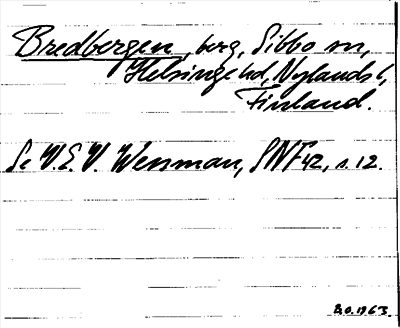 Bredbergen, berg, Sibbo sn,
Helsinge hd, Nylands l,
Finland.
Se V.E.V. Wessman, SNF 42, s. 12.
B.O. 1963